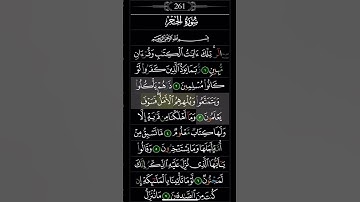 261
سُورَةُ الحِجْرِ
بِسْمِ اللَّهِ الرَّحْمَٰنِ الرَّحِيمِ
الٓر ۚ تِلْكَ ءَايَٰتُ ٱلْكِتَٰبِ وَقُرْءَانٍ
مُّبِينٍ ١ رُّبَمَا يَوَدُّ ٱلَّذِينَ كَفَرُوا۟ لَوْ
كَانُوا۟ مُسْلِمِينَ ٢ ذَرْهُمْ يَأْكُلُوا۟
وَيَتَمَتَّعُوا۟ وَيُلْهِهِمُ ٱلْأَمَلُ ۖ فَسَوْفَ
يَعْلَمُونَ ٣ وَمَآ أَهْلَكْنَا مِن قَرْيَةٍ إِلَّا
وَلَهَا كِتَابٌ مَّعْلُومٌ ٤ مَّا تَسْبِقُ مِنْ
أُمَّةٍ أَجَلَهَا وَمَا يَسْتَـْٔخِرُونَ ٥ وَقَالُوا۟
يَٰٓأَيُّهَا ٱلَّذِى نُزِّلَ عَلَيْهِ ٱلذِّكْرُ إِنَّكَ
لَمَجْنُونٌ ٦ لَّوْ مَا تَأْتِينَا بِٱلْمَلَٰٓئِكَةِ إِن
كُنتَ مِنَ ٱلصَّٰدِقِينَ ٧ مَا نُنَزِّلُ